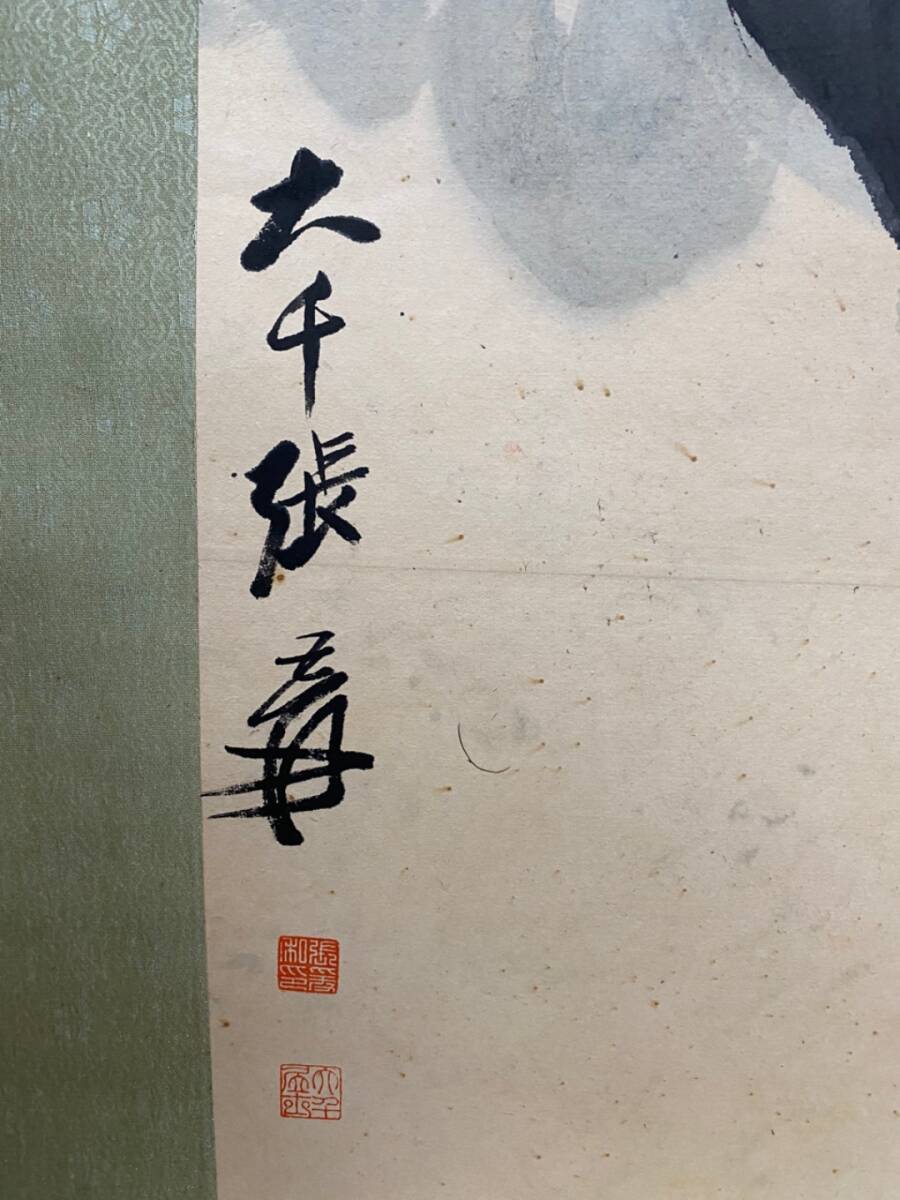 大千張爰
張爰私印
大千居士